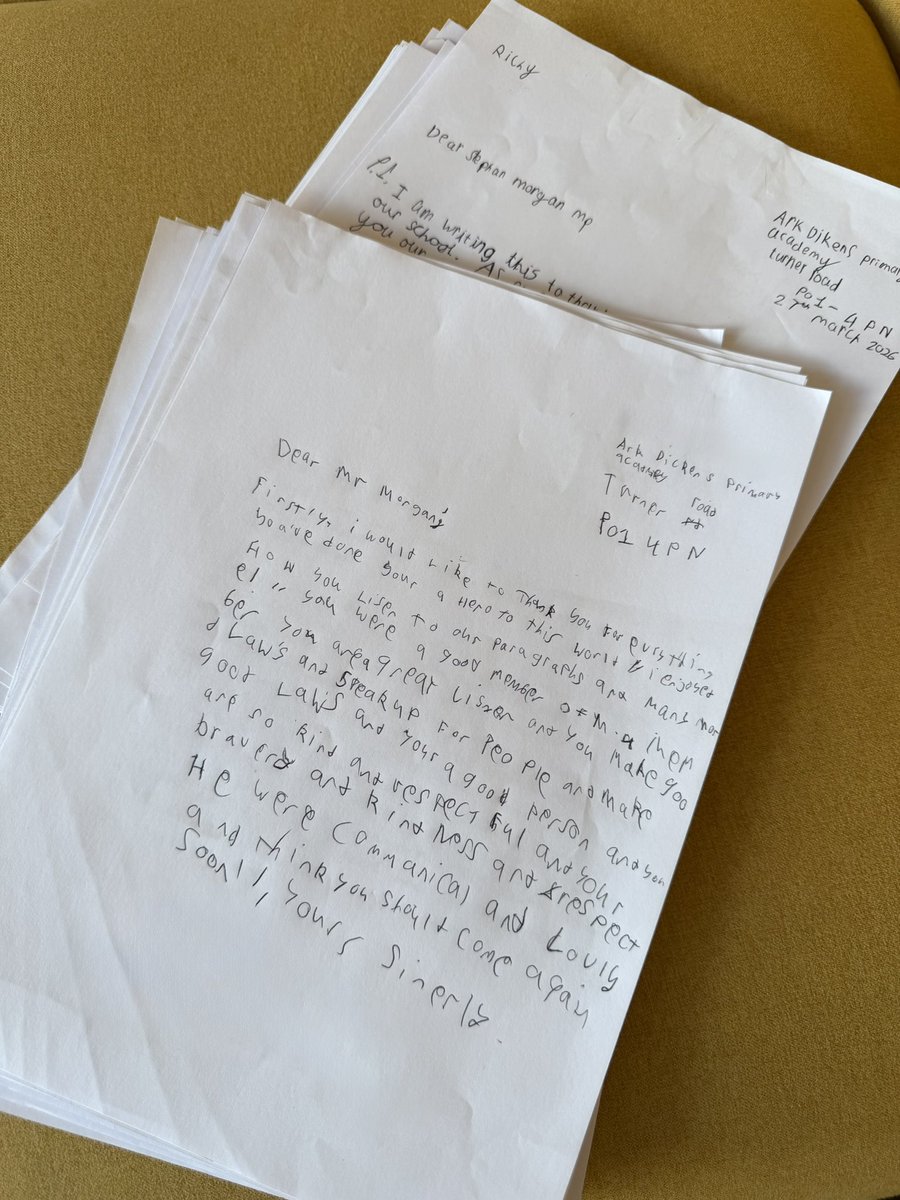 Ricky
Dear stephan morgan mp
Ark Dikens primary
academy
turner road
Po1-4PN
2 march 2026
P.1. I am writing this to
our school. As
you our
Ark Dickens primary
academy road
Turner
PO1 4PN
Dear Mr Morgan,
Firstly, i would like to Thank you for evrything
you a Hero to this world i enjoyed
How you liser to our paragraphs and many mor
el " you were a good member of
ber you are a great lisner and you make goo
d Law's and speak up for People and make
good Law's and your a good person and you
are so kind and respectful and your
and kindness and respect
He were Commanical and Lovly
and Think you should come again
Soon!!, yours Sinerly.